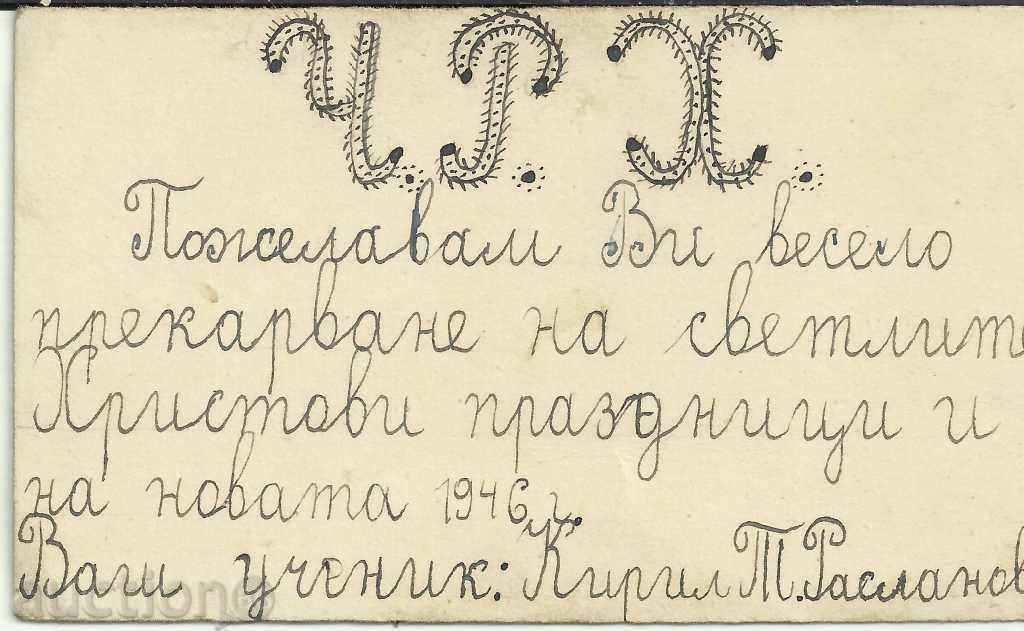 Ч.Р.Х.
Пожелавам Ви весело
прекарване на светлите
Христови праздници и
на новата 1946 г.
Ваш ученик: Кирил Т. Расланов
auction